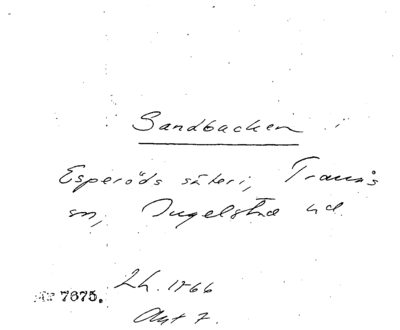 Sandbacken
Esperöds säteri, Tranås
sn, Ingelstad hd.
7675. Lh. 1866
Akt 7.